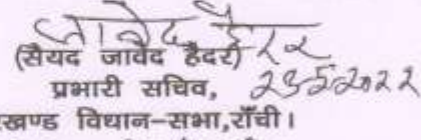 जावेद हैदर
(सैयद जावेद हैदर)
प्रभारी सचिव, 23-5-2022
खण्ड विधान-सभा, राँची।